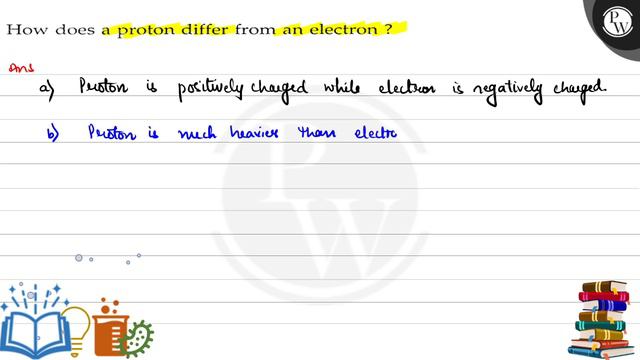 How does a proton differ from an electron ?
Ans
a) Proton is positively charged while electron is negatively charged.
b) Proton is much heavier than electro
PW
PW